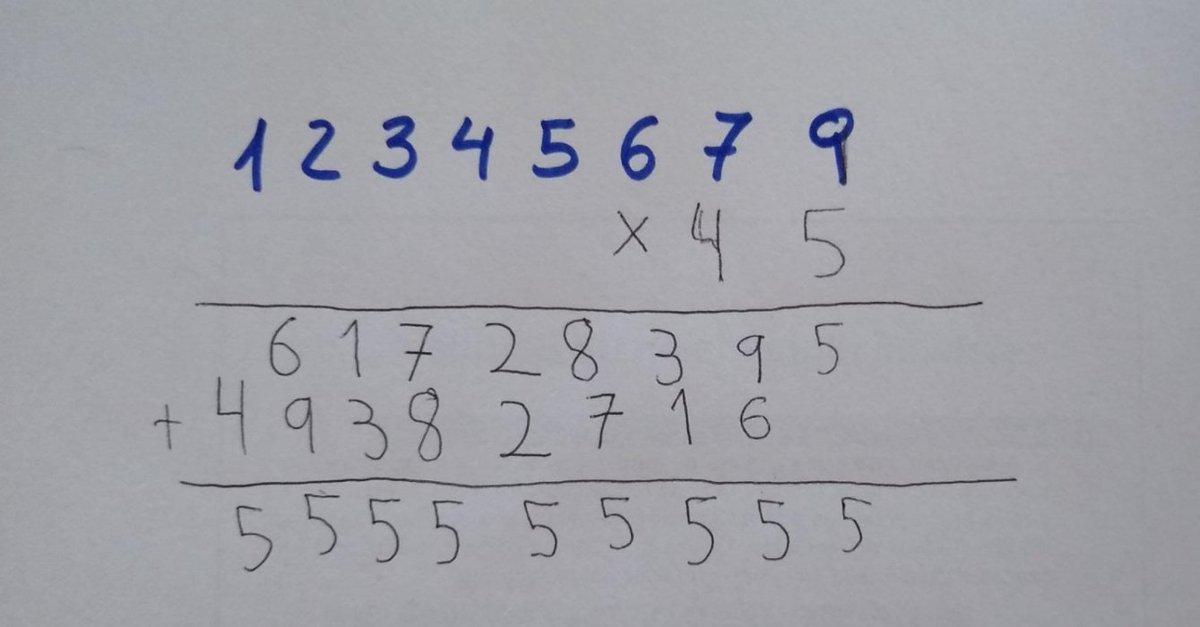 1 2 3 4 5 6 7 9
× 4 5
6 1 7 2 8 3 9 5
+ 4 9 3 8 2 7 1 6
5 5 5 5 5 5 5 5 5